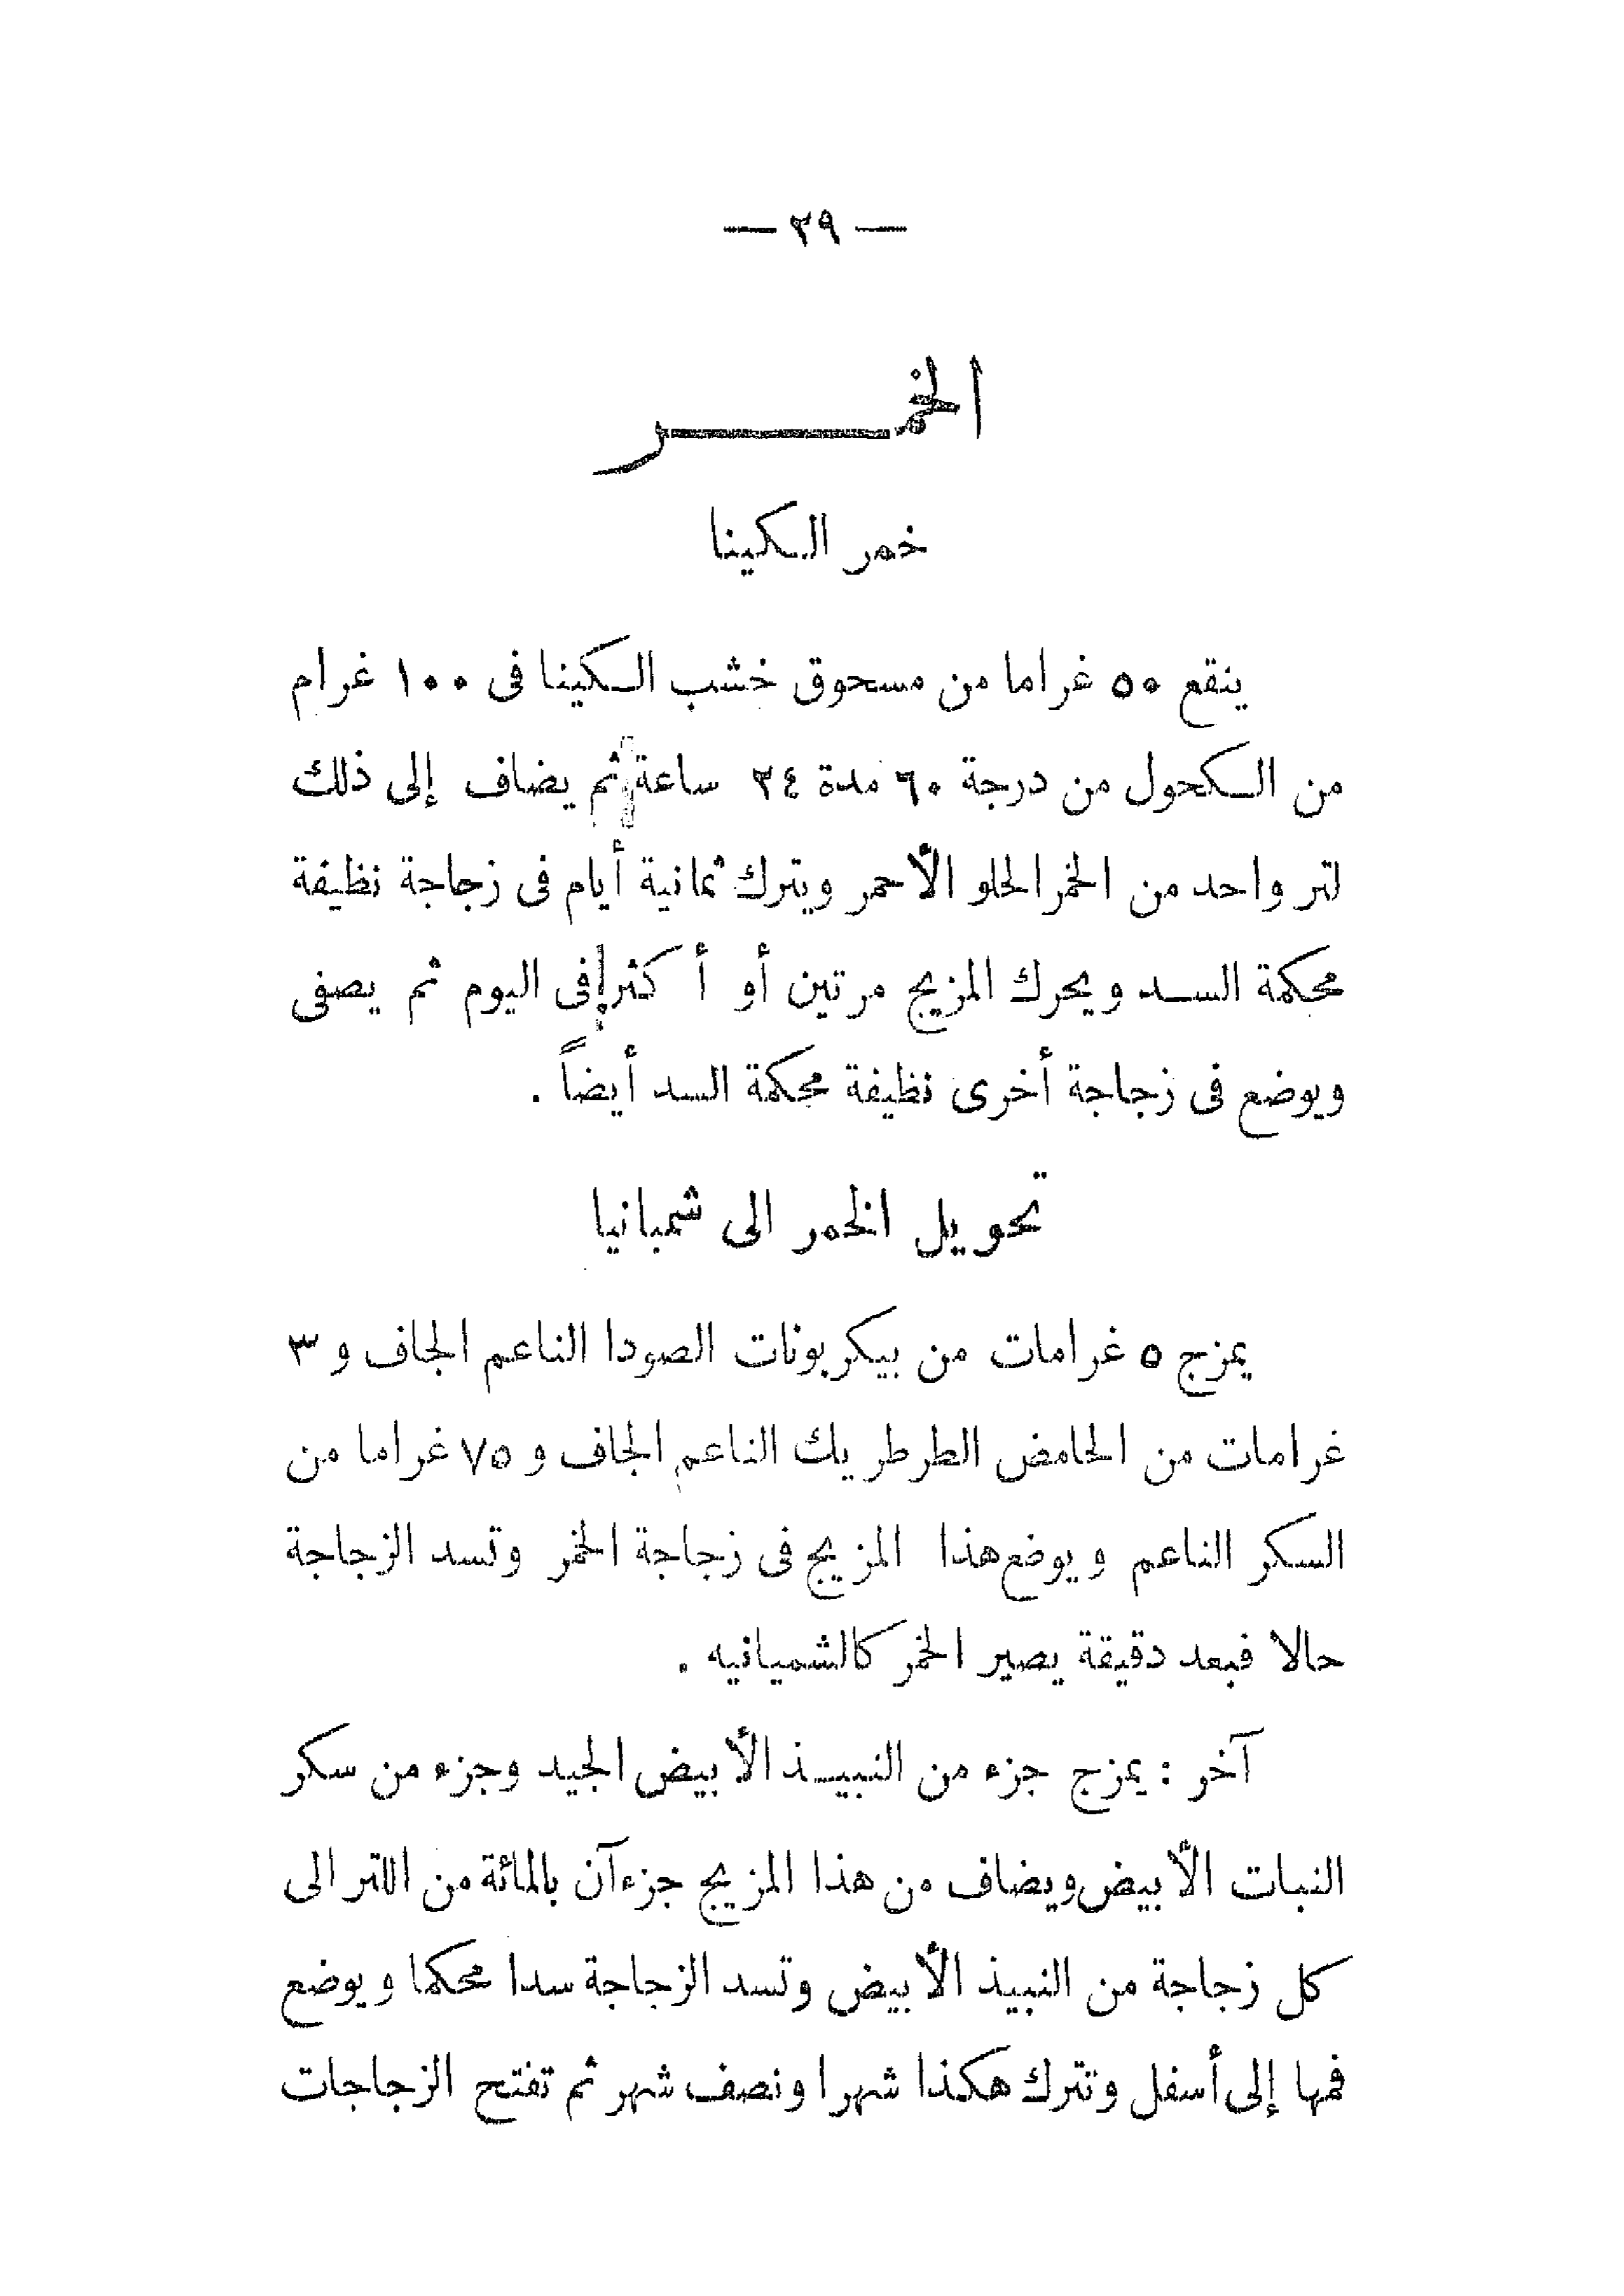 — ٢٩ —
الخمر
خمر الكينا
ينقع ٥٠ غراما من مسحوق خشب الكينا فى ١٠٠ غرام
من الكحول من درجة ٦٠ مدة ٢٤ ساعة ثم يضاف إلى ذلك
لتر واحد من الخمر الحلو الأحمر ويترك ثمانية أيام فى زجاجة نظيفة
محكمة السد ويحرك المزيج مرتين أو أكثر فى اليوم ثم يصفى
ويوضع فى زجاجة أخرى نظيفة محكمة السد أيضاً .
تحويل الخمر الى شمبانيا
يمزج ٥ غرامات من بيكربونات الصودا الناعم الجاف و ٣
غرامات من الحامض الطرطريك الناعم الجاف و ٧٥ غراما من
السكر الناعم ويوضع هذا المزيج فى زجاجة الخمر وتسد الزجاجة
حالا فبعد دقيقة يصير الخمر كالشميانيه .
آخر : يمزج جزء من النبيذ الأبيض الجيد وجزء من سكر
النبات الأبيض ويضاف من هذا المزيج جزءآن بالمائة من اللتر الى
كل زجاجة من النبيذ الأبيض وتسد الزجاجة سدا محكما ويوضع
فمها إلى أسفل وتترك هكذا شهرا ونصف شهر ثم تفتح الزجاجات